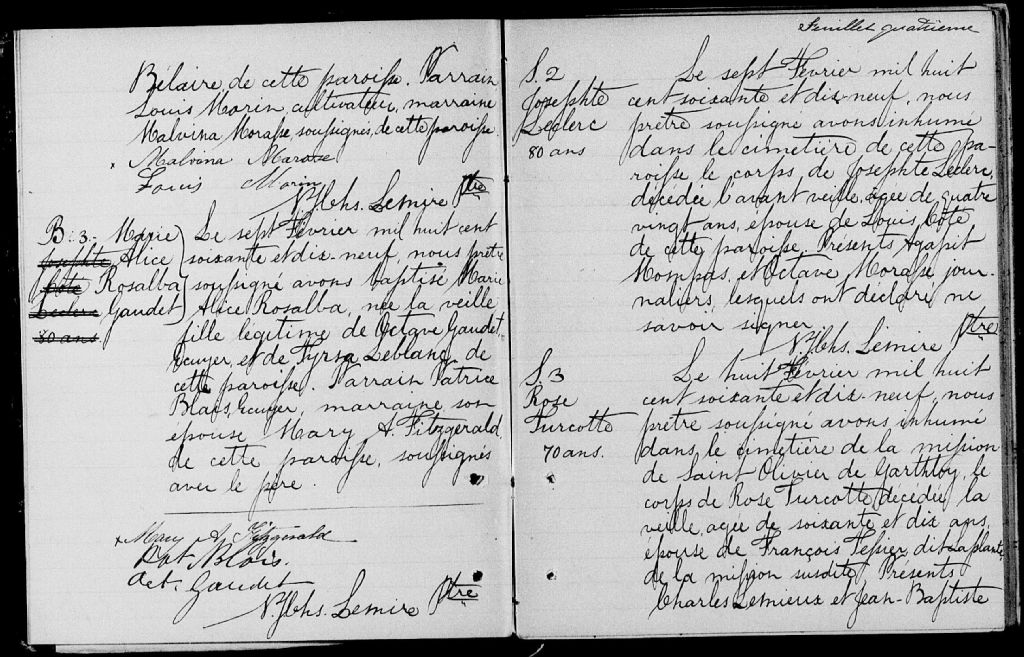 Bélaire, de cette paroisse. Parrain
Louis Morin cultivateur, marraine
Malvina Morasse soussignés, de cette paroisse
x Malvina Marasse
Louis Morin
N. Jhs. Lemire Ptre
B. 3. Marie
Josephte Alice
Côté Rosalba
Leclerc Gaudet
80 ans
Le sept Février mil huit cent
soixante et dix-neuf, nous prêtre
soussigné avons baptisé Marie
Alice Rosalba, née la veille
fille légitime de Octave Gaudet
écuyer, et de Tyrsa Leblanc, de
cette paroisse. Parrain Patrice
Blais, Ecuyer, marraine son
épouse Mary A. Fitzgerald,
de cette paroisse, soussignés
avec le père.
x Mary A. Fitzgerald
Pat Blais.
Oct. Gaudet
N. Jhs. Lemire Ptre
Feuillet quatrième
S. 2
Josephte
Leclerc
80 ans
Le sept Février mil huit
cent soixante et dix-neuf, nous
prêtre soussigné avons inhumé
dans le cimetière de cette pa-
roisse le corps de Josephte Leclerc,
décédée l'avant veille, agée de quatre
vingt ans, épouse de Louis Côté
de cette paroisse. Présents Agapit
Mompas, et Octave Morasse jour-
naliers, lesquels ont déclaré ne
savoir signer
N. Jhs. Lemire Ptre
S. 3
Rose
Turcotte
70 ans.
Le huit Février mil huit
cent soixante et dix-neuf, nous
prêtre soussigné avons inhumé
dans le cimetière de la mission
de Saint Olivier de Garthby, le
corps de Rose Turcotte, décédée la
veille, agée de soixante et dix ans,
épouse de François Tessier dit Laplante,
de la mission susdite, Présents
Charles Lemieux et Jean-Baptiste